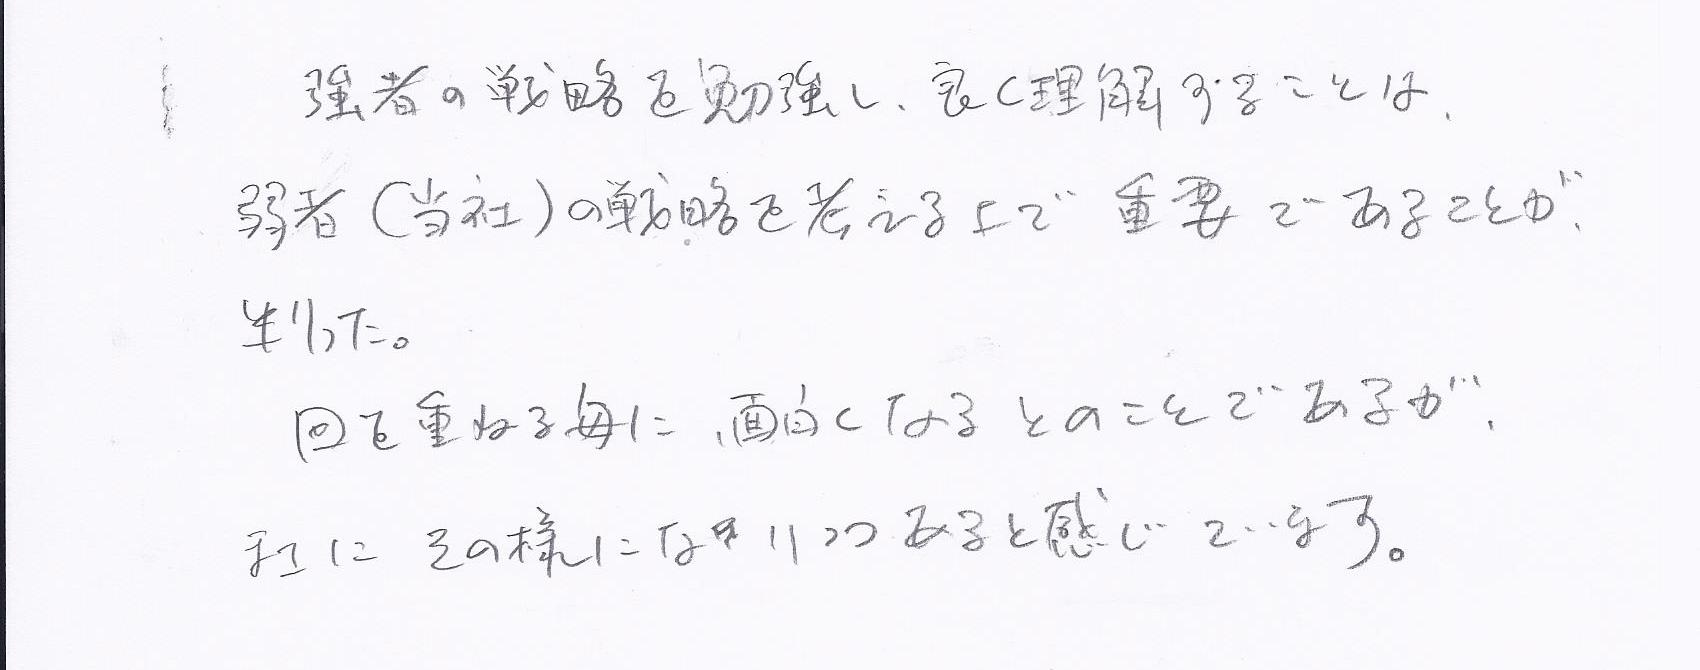 強者の戦略を勉強し、良く理解することは、
弱者(当社)の戦略を考える上で重要であることが、
判った。
回を重ねる毎に、面白くなるとのことであるが、
正にその様になりつつあると感じています。